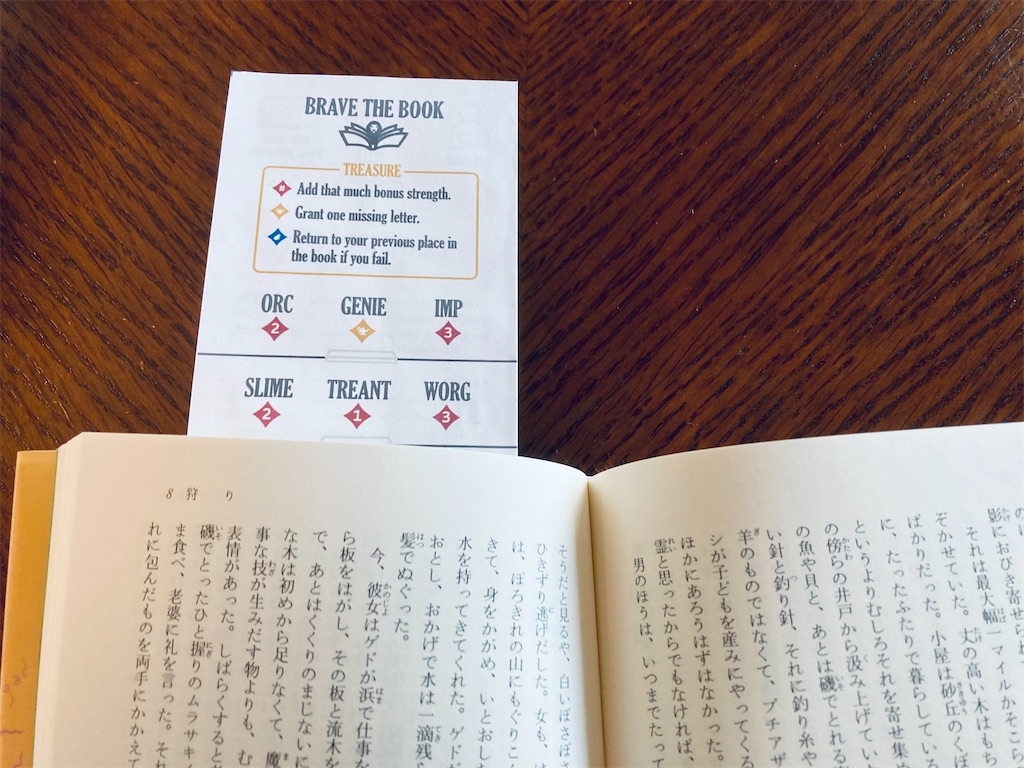 BRAVE THE BOOK
TREASURE
# Add that much bonus strength.
Grant one missing letter.
Return to your previous place in
the book if you fail.
ORC GENIE IMP
2 3
SLIME TREANT WORG
2 1 3
影におびき寄せられ
それは最大幅一マイルかそこら
ぞかせていた。丈の高い木はもち
ばかりだった。小屋は砂丘のくぼ
に、たったふたりで暮らしている
というよりむしろそれを寄せ集め
の傍らの井戸から汲み上げてい
の魚や貝と、あとは磯でとれる
い針と釣り針、それに釣り糸や
羊のものではなくて、プチアザ
シが子どもを産みにやってくる
ほかにあろうはずはなかった。
霊と思ったからでもなければ、
男のほうは、いつまでたっ
8 狩り
そうだと見るや、白いぼさぼさ
ひきずり逃げだした。女も、
は、ぼろきれの山にもぐりこ
きて、身をかがめ、いとおし
水を持ってきてくれた。ゲド
おとし、おかげで水は一滴残
髪でぬぐった。
今、彼女はゲドが浜で仕事を
ら板をはがし、その板と流木を
で、あとはくくりのまじないに
な木は初めから足りなくて、魔
事な技が生みだす物よりも、む
表情があった。しばらくすると
磯でとったひと握りのムラサキイ
ま食べ、老婆に礼を言った。それ
れに包んだものを両手にかかえて